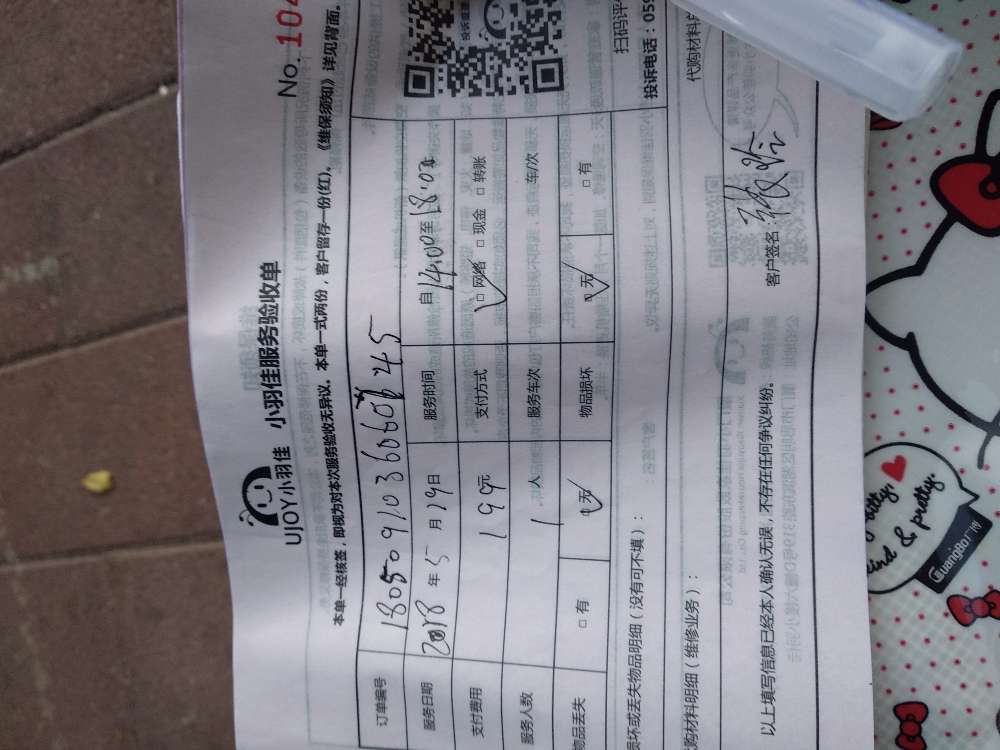 No. 104
UJOY小羽佳 小羽佳服务验收单
本单一经核签，即视为对本次服务验收无异议。本单一式两份，客户留存一份(红)。《维保须知》详见背面。
订单编号
服务日期 2018 年 5 月 19 日 服务时间 自 14:00 至 18:00
支付费用 199 元 支付方式 □ 网络 □ 现金 □ 转账
服务人数 1 人 服务车次 车/次
物品丢失 □ 有 □ 无 物品损坏 □ 无 □ 有
损坏或丢失物品明细（没有可不填）：
购材料明细（维修业务）：
代购材料
以上填写信息已经本人确认无误，不存在任何争议纠纷。
客户签名：
扫码评
投诉电话：059
kind & pretty.
GuangBo广博